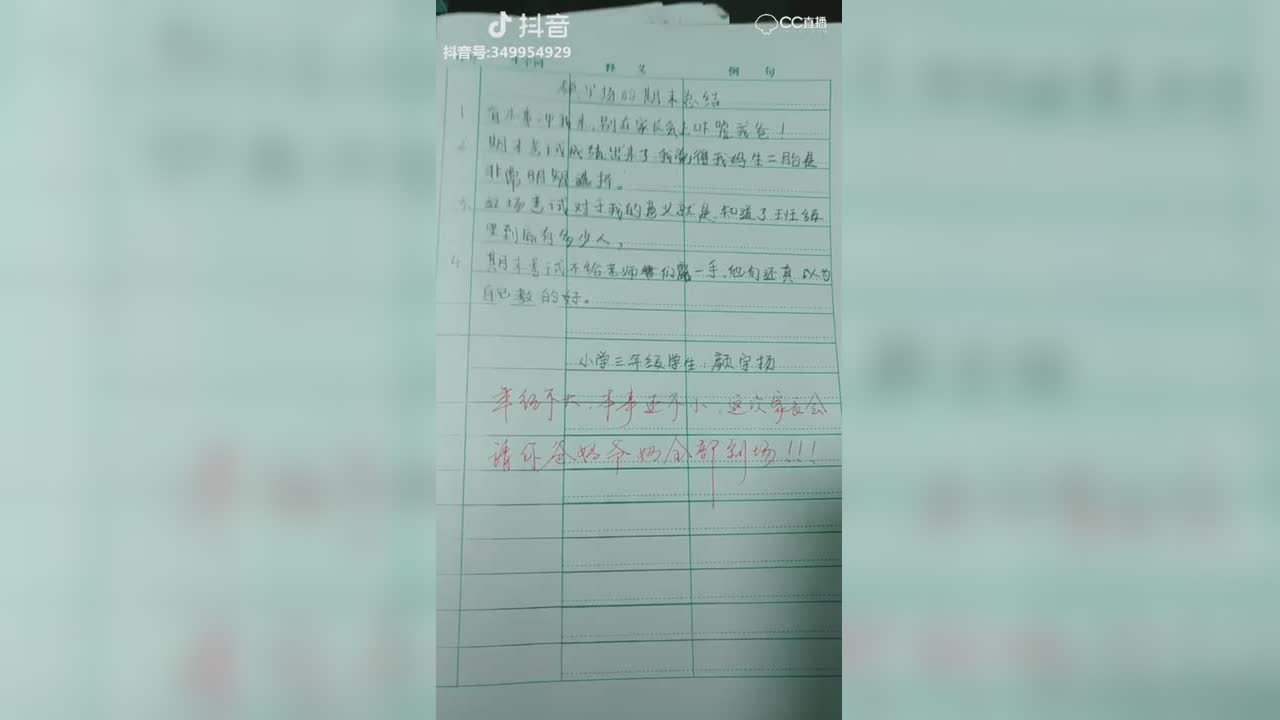 抖音
CC直播
抖音号:349954929
释 义 例 句
扬的期末总结
1 有本事 冲我来,别在家长会上吓唬我爸!
2 期末考试成绩出来了我觉得我妈生二胎是
非常明智选择。
3 这场考试对于我的意义就是,知道了班级
里到底有多少人,
4 期末考试不给老师们露一手,他们还真以为
自己教的好。
小学三年级学生:颜宇扬
年纪不大,本事还不小,这次家长会
请你爸妈爷奶全部到场!!!